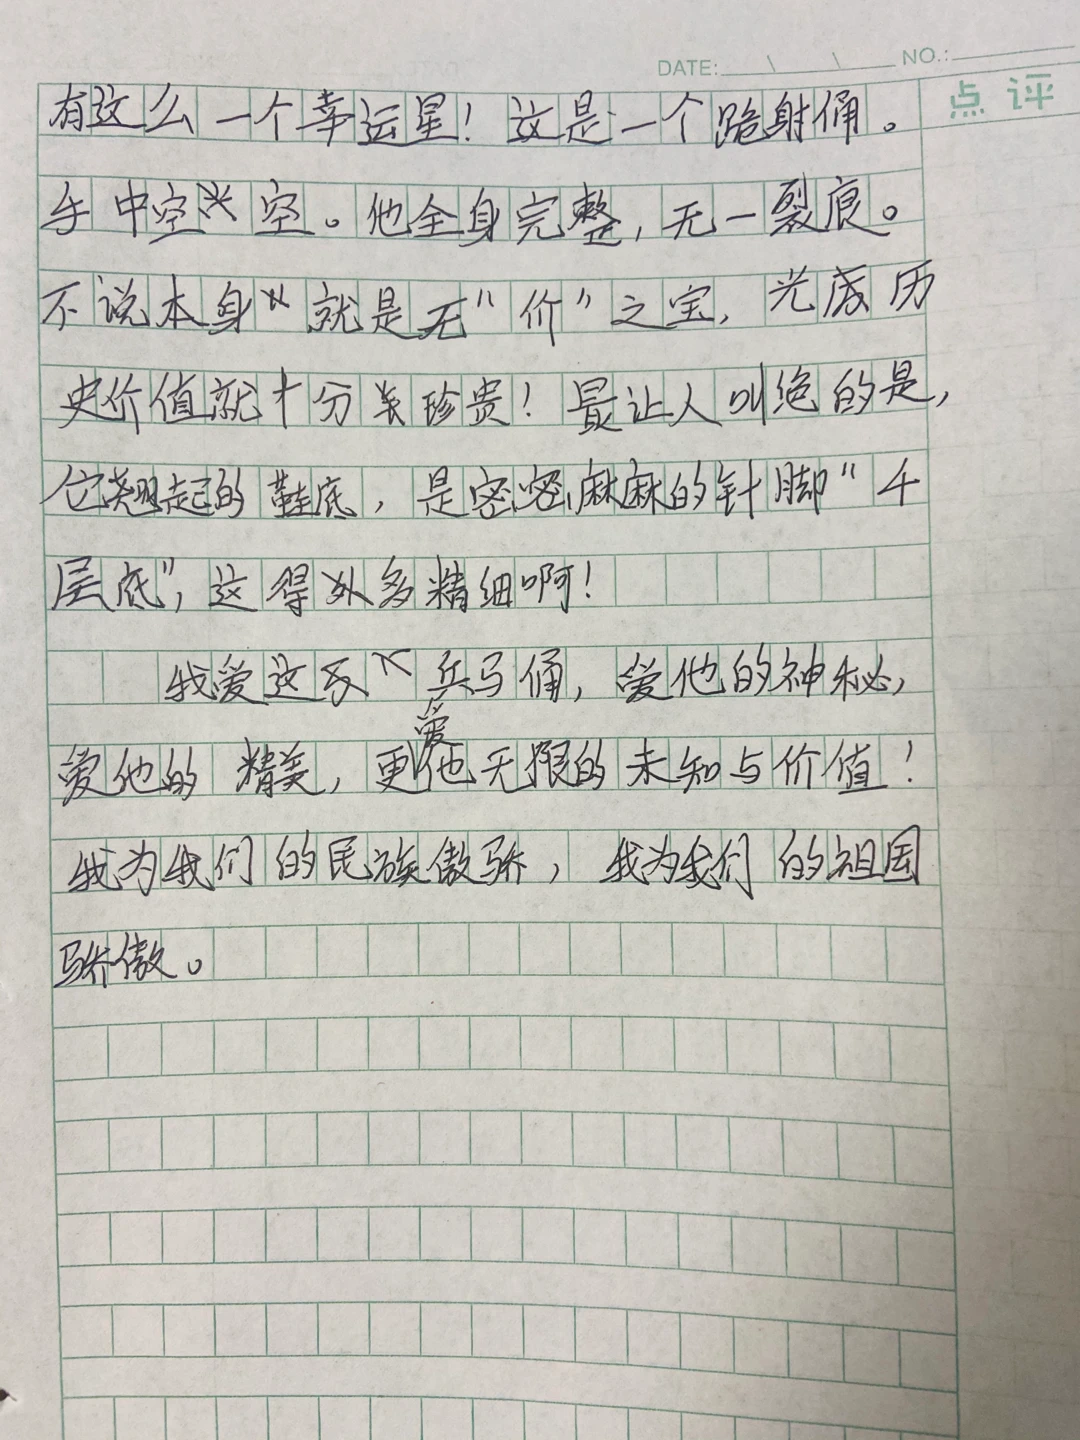 DATE: \ \ NO.:
点评
有这么一个幸运星！这是一个跪射俑。
手中空空。他全身完整，无一裂痕。
不说本身就是无"价"之宝，光底历
史价值就十分珍贵！最让人叫绝的是，
它翘起的鞋底，是密密麻麻的针脚"千
层底"，这得多精细啊！
我爱这兵马俑，爱他的神秘，
爱他的精美，更爱他无限的未知与价值！
我为我们的民族傲骄，我为我们的祖国
骄傲。